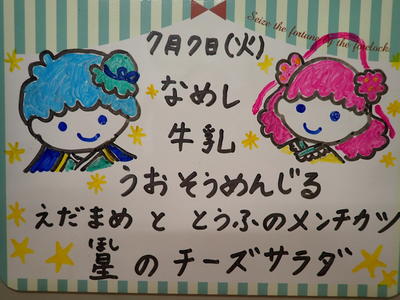 Seize the fortune by the forelock.
7月7日(火)
なめし
牛乳
うおそうめんじる
えだまめ と とうふのメンチカツ
ほし
星 の チーズサラダ